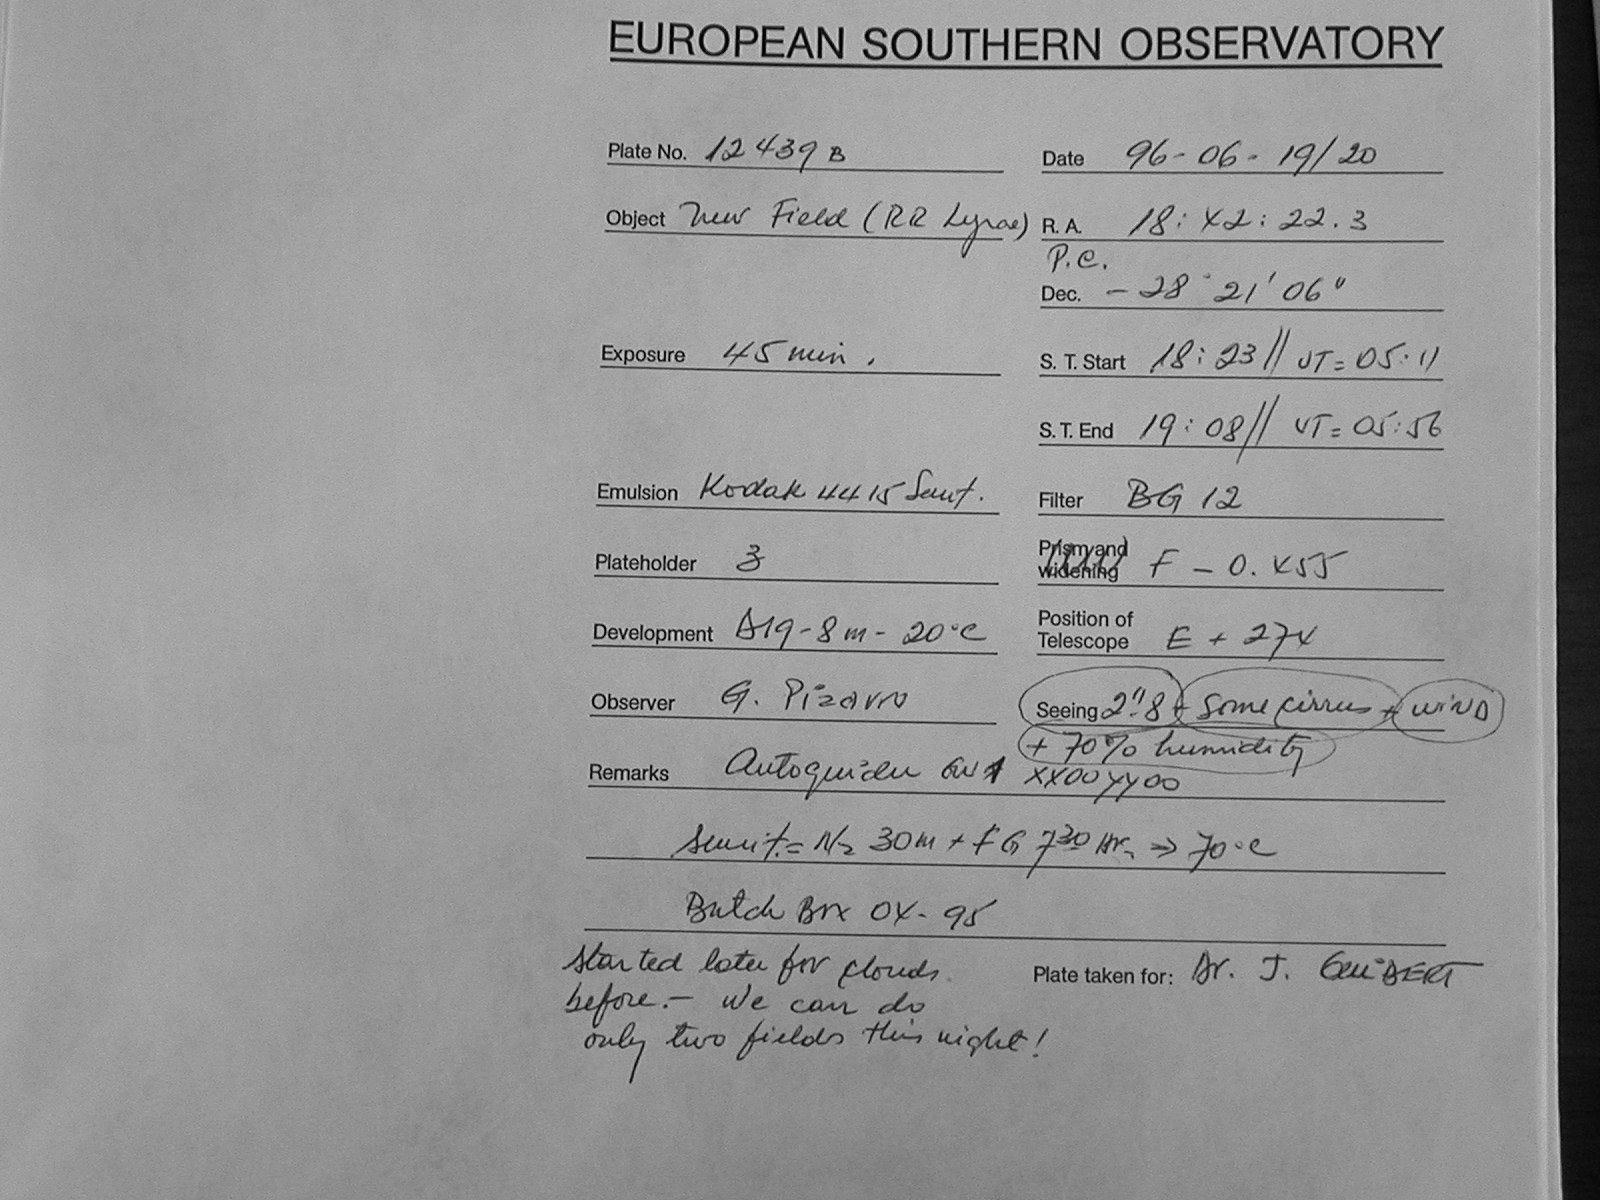 EUROPEAN SOUTHERN OBSERVATORY
Plate No. 12439 B Date 96-06-19/20
Object New Field (RR Lyrae) R. A. 18:42:22.3
P.C.
Dec. -28° 21' 06"
Exposure 45 min. S. T. Start 18:23 // UT=05:11
S. T. End 19:08 // UT=05:56
Emulsion Kodak 4415 Sensit. Filter BG 12
Plateholder 3 Prism and widening F - 0.455
Development D19-8m-20°C Position of Telescope E + 274
Observer G. Pizarro Seeing 2".8 + some cirrus + WIND
+ 70% humidity
Remarks Autoguider XX00YY00
Sensit.= N2 30m + FG 7 30 Hr. ⇒ 70°C
Batch Box 04-95
Started later for clouds
before.- We can do
only two fields this night!
Plate taken for: Dr. J. GUIBERT